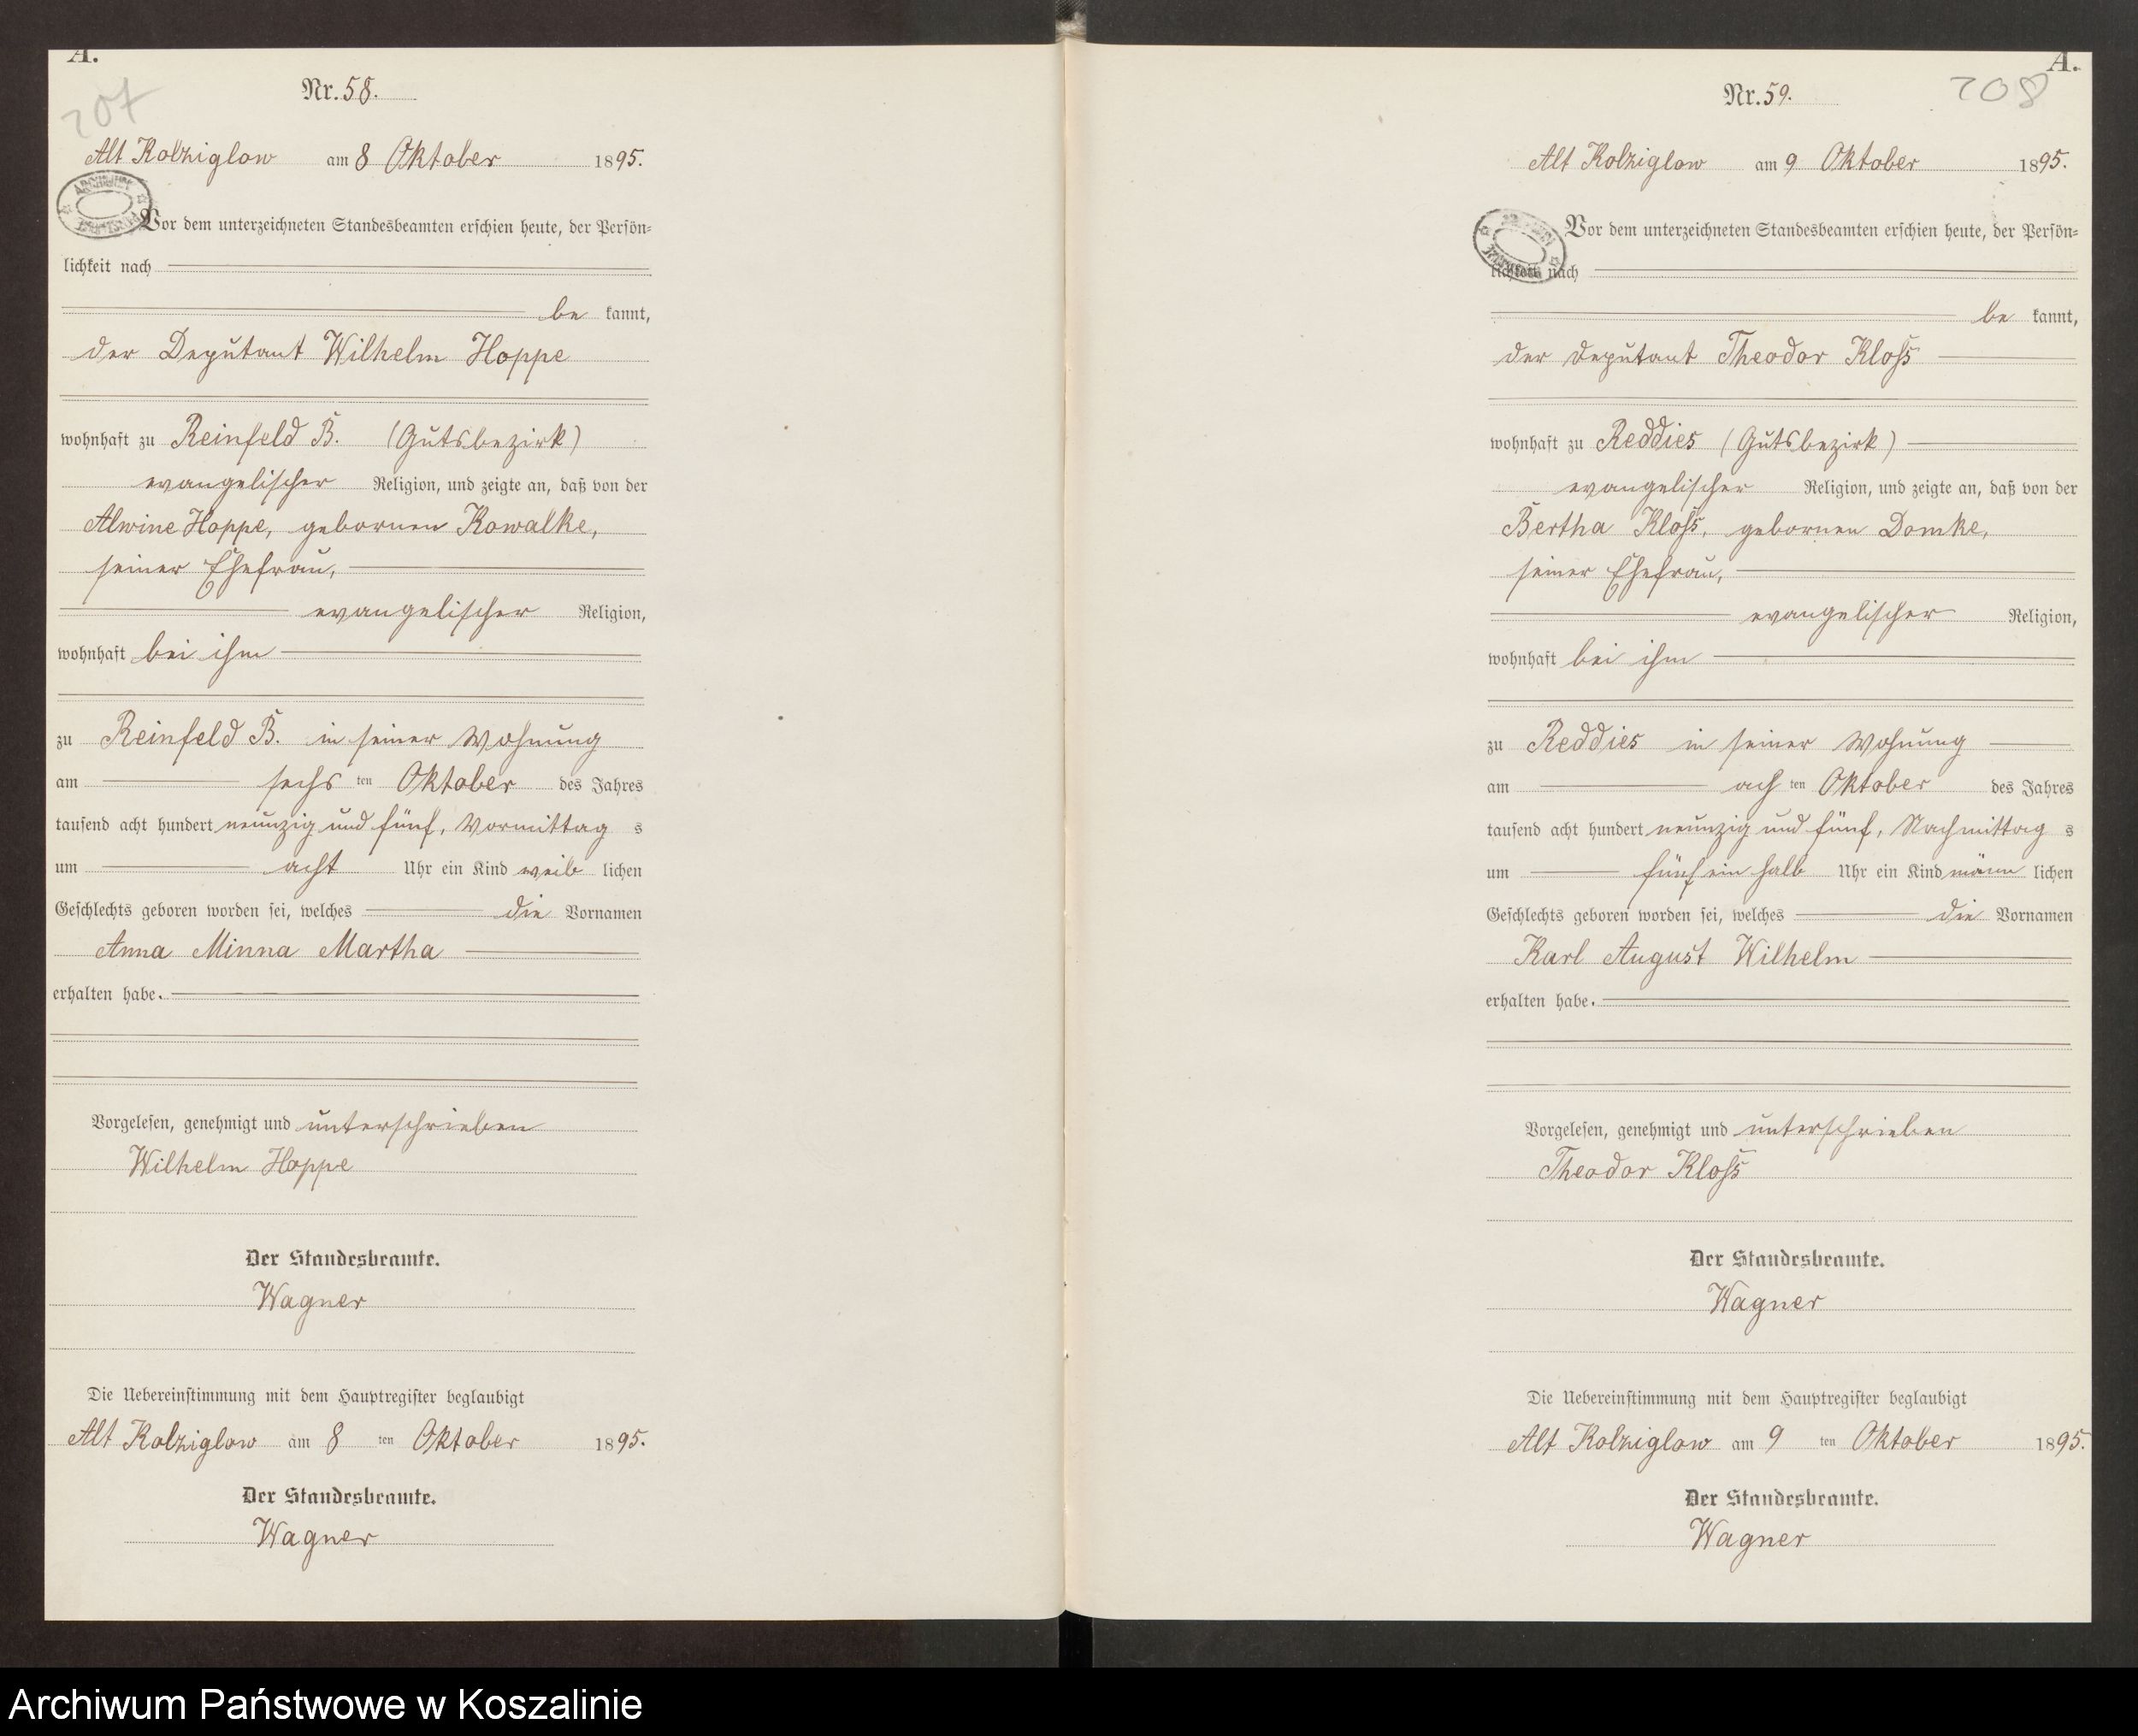 A.
207
Nr. 58.
Alt Kolziglow am 8 Oktober 1895.
Vor dem unterzeichneten Standesbeamten erschien heute, der Persön-
lichkeit nach
be kannt,
der Deputant Wilhelm Hoppe
wohnhaft zu Reinfeld B. (Gutsbezirk)
evangelischer Religion, und zeigte an, daß von der
Alwine Hoppe, gebornen Kowalke,
seiner Ehefrau,
evangelischer Religion,
wohnhaft bei ihm
zu Reinfeld B. in seiner Wohnung
am sechs ten Oktober des Jahres
tausend acht hundert neunzig und fünf, Vormittag s
um acht Uhr ein Kind weib lichen
Geschlechts geboren worden sei, welches die Vornamen
Anna Minna Martha
erhalten habe.
Vorgelesen, genehmigt und unterschrieben
Wilhelm Hoppe
Der Standesbeamte.
Wagner
Die Uebereinstimmung mit dem Hauptregister beglaubigt
Alt Kolziglow am 8 ten Oktober 1895.
Der Standesbeamte.
Wagner
A.
208
Nr. 59.
Alt Kolziglow am 9 Oktober 1895.
Vor dem unterzeichneten Standesbeamten erschien heute, der Persön-
lichkeit nach
be kannt,
der Deputant Theodor Kloß
wohnhaft zu Reddies (Gutsbezirk)
evangelischer Religion, und zeigte an, daß von der
Bertha Kloß, gebornen Domke,
seiner Ehefrau,
evangelischer Religion,
wohnhaft bei ihm
zu Reddies in seiner Wohnung
am ach ten Oktober des Jahres
tausend acht hundert neunzig und fünf, Nachmittag s
um fünf ein halb Uhr ein Kind männ lichen
Geschlechts geboren worden sei, welches die Vornamen
Karl August Wilhelm
erhalten habe.
Vorgelesen, genehmigt und unterschrieben
Theodor Kloß
Der Standesbeamte.
Wagner
Die Uebereinstimmung mit dem Hauptregister beglaubigt
Alt Kolziglow am 9 ten Oktober 1895.
Der Standesbeamte.
Wagner
Archiwum Państwowe w Koszalinie